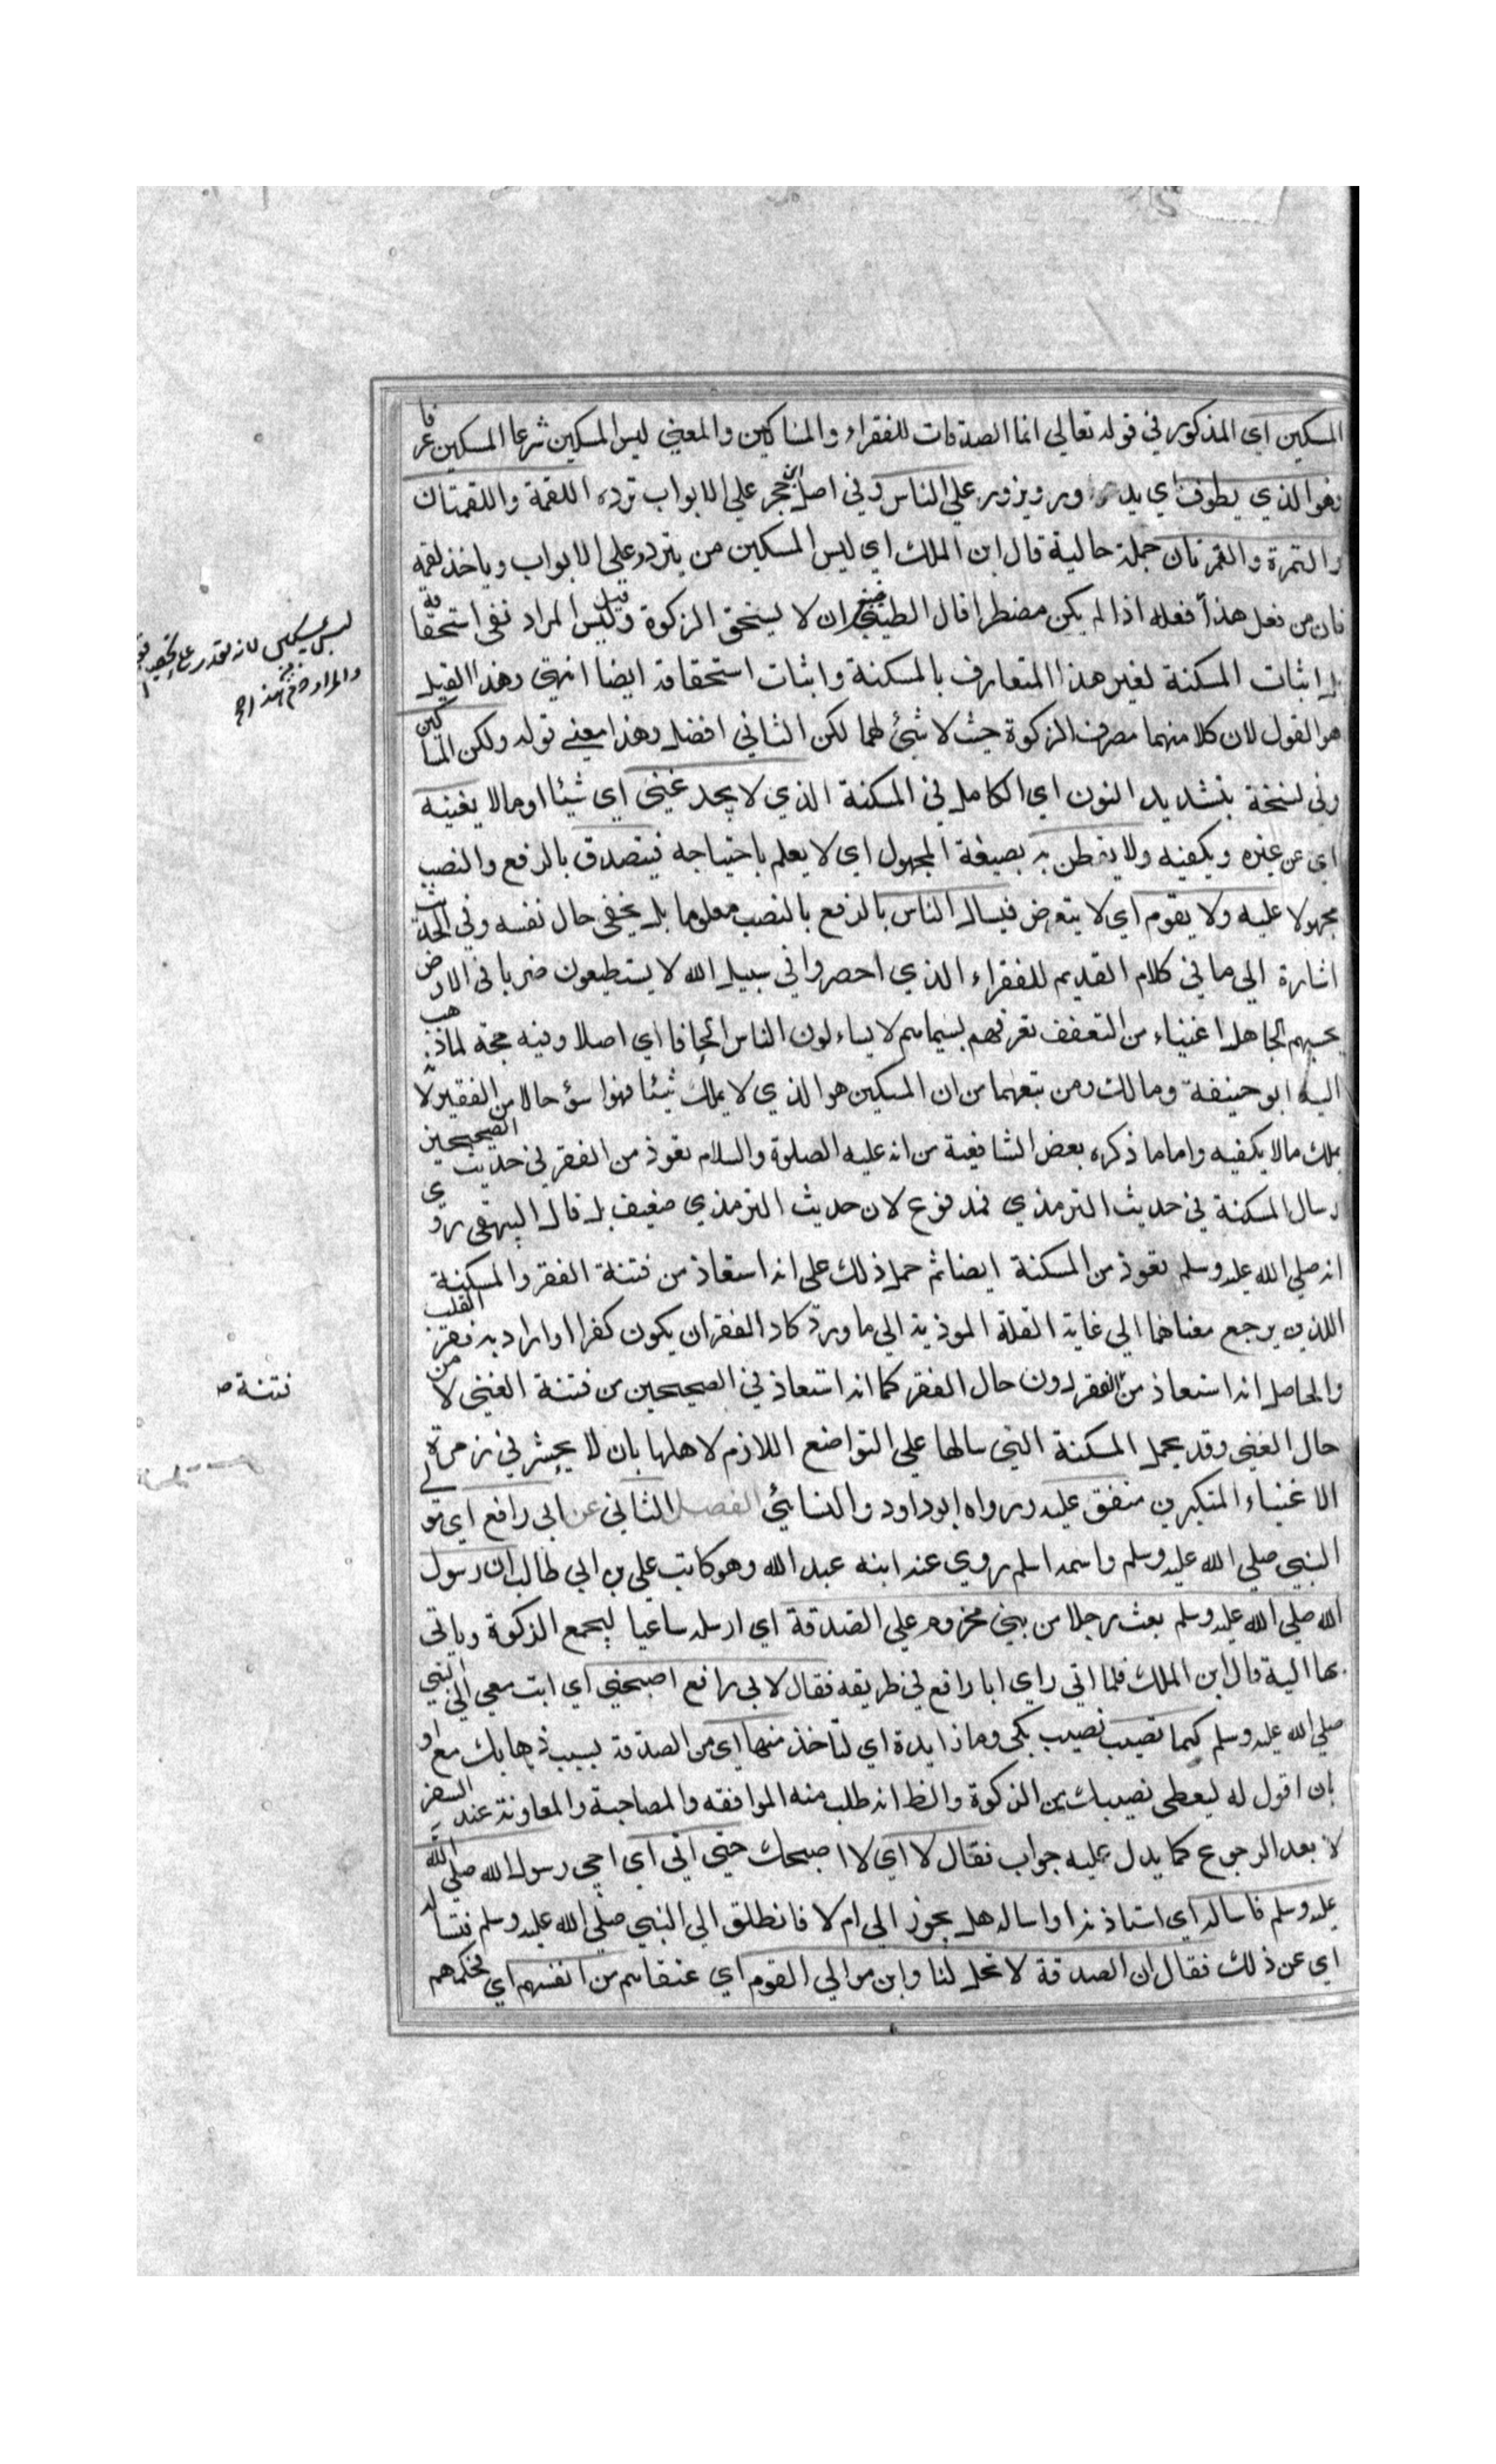 المسكين اي المذكور في قوله تعالي انما الصدقات للفقراء والمساكين والمعني ليس المسكين شرعا المسكين عرفا
وهو الذي يطوف اي يدور ويزور علي الناس وفي اصل ابن حجر علي الابواب ترده اللقمة واللقمتان
والتمرة والتمرتان جملة حالية قال ابن الملك اي ليس المسكين من يتردد علي الابواب وياخذ لقمة
فان من فعل هذا فعله اذا لم يكن مضطرا قال الطيبي فينبغي ان لا يستحق الزكوة وقيل ليس المراد نفي استحقاقه
بل اثبات المسكنة لغير هذا المتعارف بالمسكنة واثبات استحقاقه ايضا انتهي وهذا القيل
هو القول لان كلا منهما مصرف الزكوة حيث لا شئ لهما لكن الثاني افضل وهذا معني قوله ولكن المساكين
وفي نسخة بتشديد النون اي الكامل في المسكنة الذي لا يجد غني اي شيئا او مالا يغنيه
اي عن غيره ويكفيه ولا يفطن به بصيغة المجهول اي لا يعلم باحتياجه فيتصدق بالرفع والنصب
مجهولا عليه ولا يقوم اي لا يتعرض فيسال الناس بالرفع بالنصب معلوما بل يخفي حال نفسه وفي الحديث
اشارة الي ما في كلام القديم للفقراء الذي احصروا في سبيل الله لا يستطيعون ضربا في الارض
يحسبهم الجاهل اغنياء من التعفف تعرفهم بسيماهم لا يساءلون الناس الحافا اي اصلا وفيه حجة لما ذهب
اليه ابو حنيفة ومالك ومن تبعهما من ان المسكين هو الذي لا يملك شيئا فهو اسؤ حالا من الفقير لا
يملك مالا يكفيه واما ما ذكره بعض الشافعية من انه عليه الصلوة والسلام تعوذ من الفقر في حديث الصحيحين
وسال المسكنة في حديث الترمذي فمدفوع لان حديث الترمذي ضعيف بل قال البيهقي روي
انه صلي الله عليه وسلم تعوذ من المسكنة ايضا ثم حمل ذلك علي انه استعاذ من فتنة الفقر والمسكنة
اللذين يرجع معناهما الي غاية القلة الموذية الي ما ورد كاد الفقر ان يكون كفرا او اراد به فقر القلب
والحاصل انه استعاذ من الفقر دون حال الفقر كما انه استعاذ في الصحيحين من فتنة الغني لا من
حال الغني وقد يحمل المسكنة التي سالها علي التواضع اللازم لاهلها بان لا يحشر في زمرة
الاغنياء المتكبرين متفق عليه ورواه ابوداود والنسائي الفصل الثاني عن ابي رافع اي مولي
النبي صلي الله عليه وسلم واسمه اسلم روي عنه ابنه عبد الله وهو كاتب علي بن ابي طالب ان رسول
الله صلي الله عليه وسلم بعث رجلا من بني مخزوم علي الصدقة اي ارسله ساعيا ليجمع الزكوة وياتي
بها اليه قال ابن الملك فلما اتي راي ابا رافع في طريقه فقال لابي رافع اصحبني اي ايت معي الي النبي
صلي الله عليه وسلم كيما تصيب نصيب بكي وما زايدة اي لتاخذ منها اي من الصدقة بسبب ذهابك مع او
بان اقول له ليعطي نصيبك من الزكوة والظ انه طلب منه الموافقه والمصاحبة والمعاونة عند السفر
لا بعد الرجوع كما يدل عليه جواب فقال لا اي لا اصحبك حتي اتي اي اجي رسول الله صلي الله
عليه وسلم فاساله اي استاذنه او اساله هل يجوز الي ام لا فانطلق الي النبي صلي الله عليه وسلم فتساله
اي عن ذلك فقال ان الصدقة لا تحل لنا وان موالي القوم اي عتقاهم من انفسهم اي فحكمهم
والمراد
فتنة ص